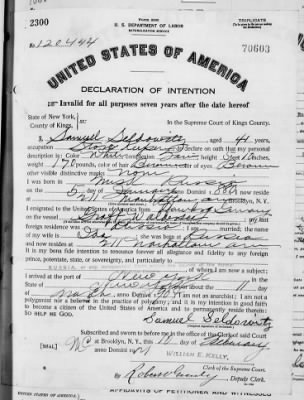 Form 2202
TRIPLICATE
2300
U. S. DEPARTMENT OF LABOR
NATURALIZATION SERVICE
No. 120444
70603
UNITED STATES OF AMERICA
DECLARATION OF INTENTION
Invalid for all purposes seven years after the date hereof
State of New York,
County of Kings,
ss:
In the Supreme Court of Kings County.
I, Samuel Seldowitz, aged 41 years,
occupation Store Keeper, do declare on oath that my personal
description is: Color White, complexion Fair, height 5 feet 10 inches,
weight 170 pounds, color of hair Brown, color of eyes Brown
other visible distinctive marks none
I was born in Minsk Russia
on the 5 day of January, anno Domini 1881; I now reside
at Manhattan ave
I emigrated to the United States of America from
on the vessel Graf Waldersee; my last
foreign residence was Russia; I am married; the name
of my wife is; she was born at Russia
and now resides at 211 Manhattan ave
It is my bona fide intention to renounce forever all allegiance and fidelity to any foreign
prince, potentate, state, or sovereignty, and particularly to
RUSSIA, of whom I am now a subject;
I arrived at the port of New York,
of New York, on or about the 11 day
of March, anno Domini; I am not an anarchist; I am not a
polygamist nor a believer in the practice of polygamy; and it is my intention in good faith
to become a citizen of the United States of America and to permanently reside therein:
SO HELP ME GOD.
Samuel Seldowitz
Subscribed and sworn to before me in the office of the Clerk of said Court
[SEAL]
at Brooklyn, N. Y., this 10 day of February
anno Domini
WILLIAM E. KELLY,
Clerk of the Supreme Court.
By Deputy Clerk.
AFFIDAVITS OF PETITIONER AND WITNESSES